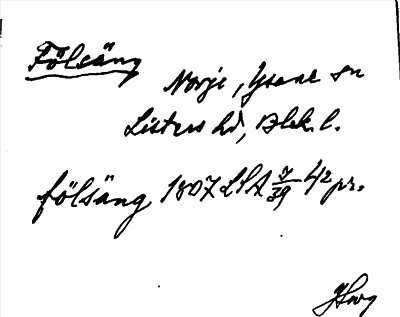 Fölsäng
Norje, Ysane sn
Listers hd, Blek. l.
fölsäng 1807 LSA 7/39 1/2 pr.